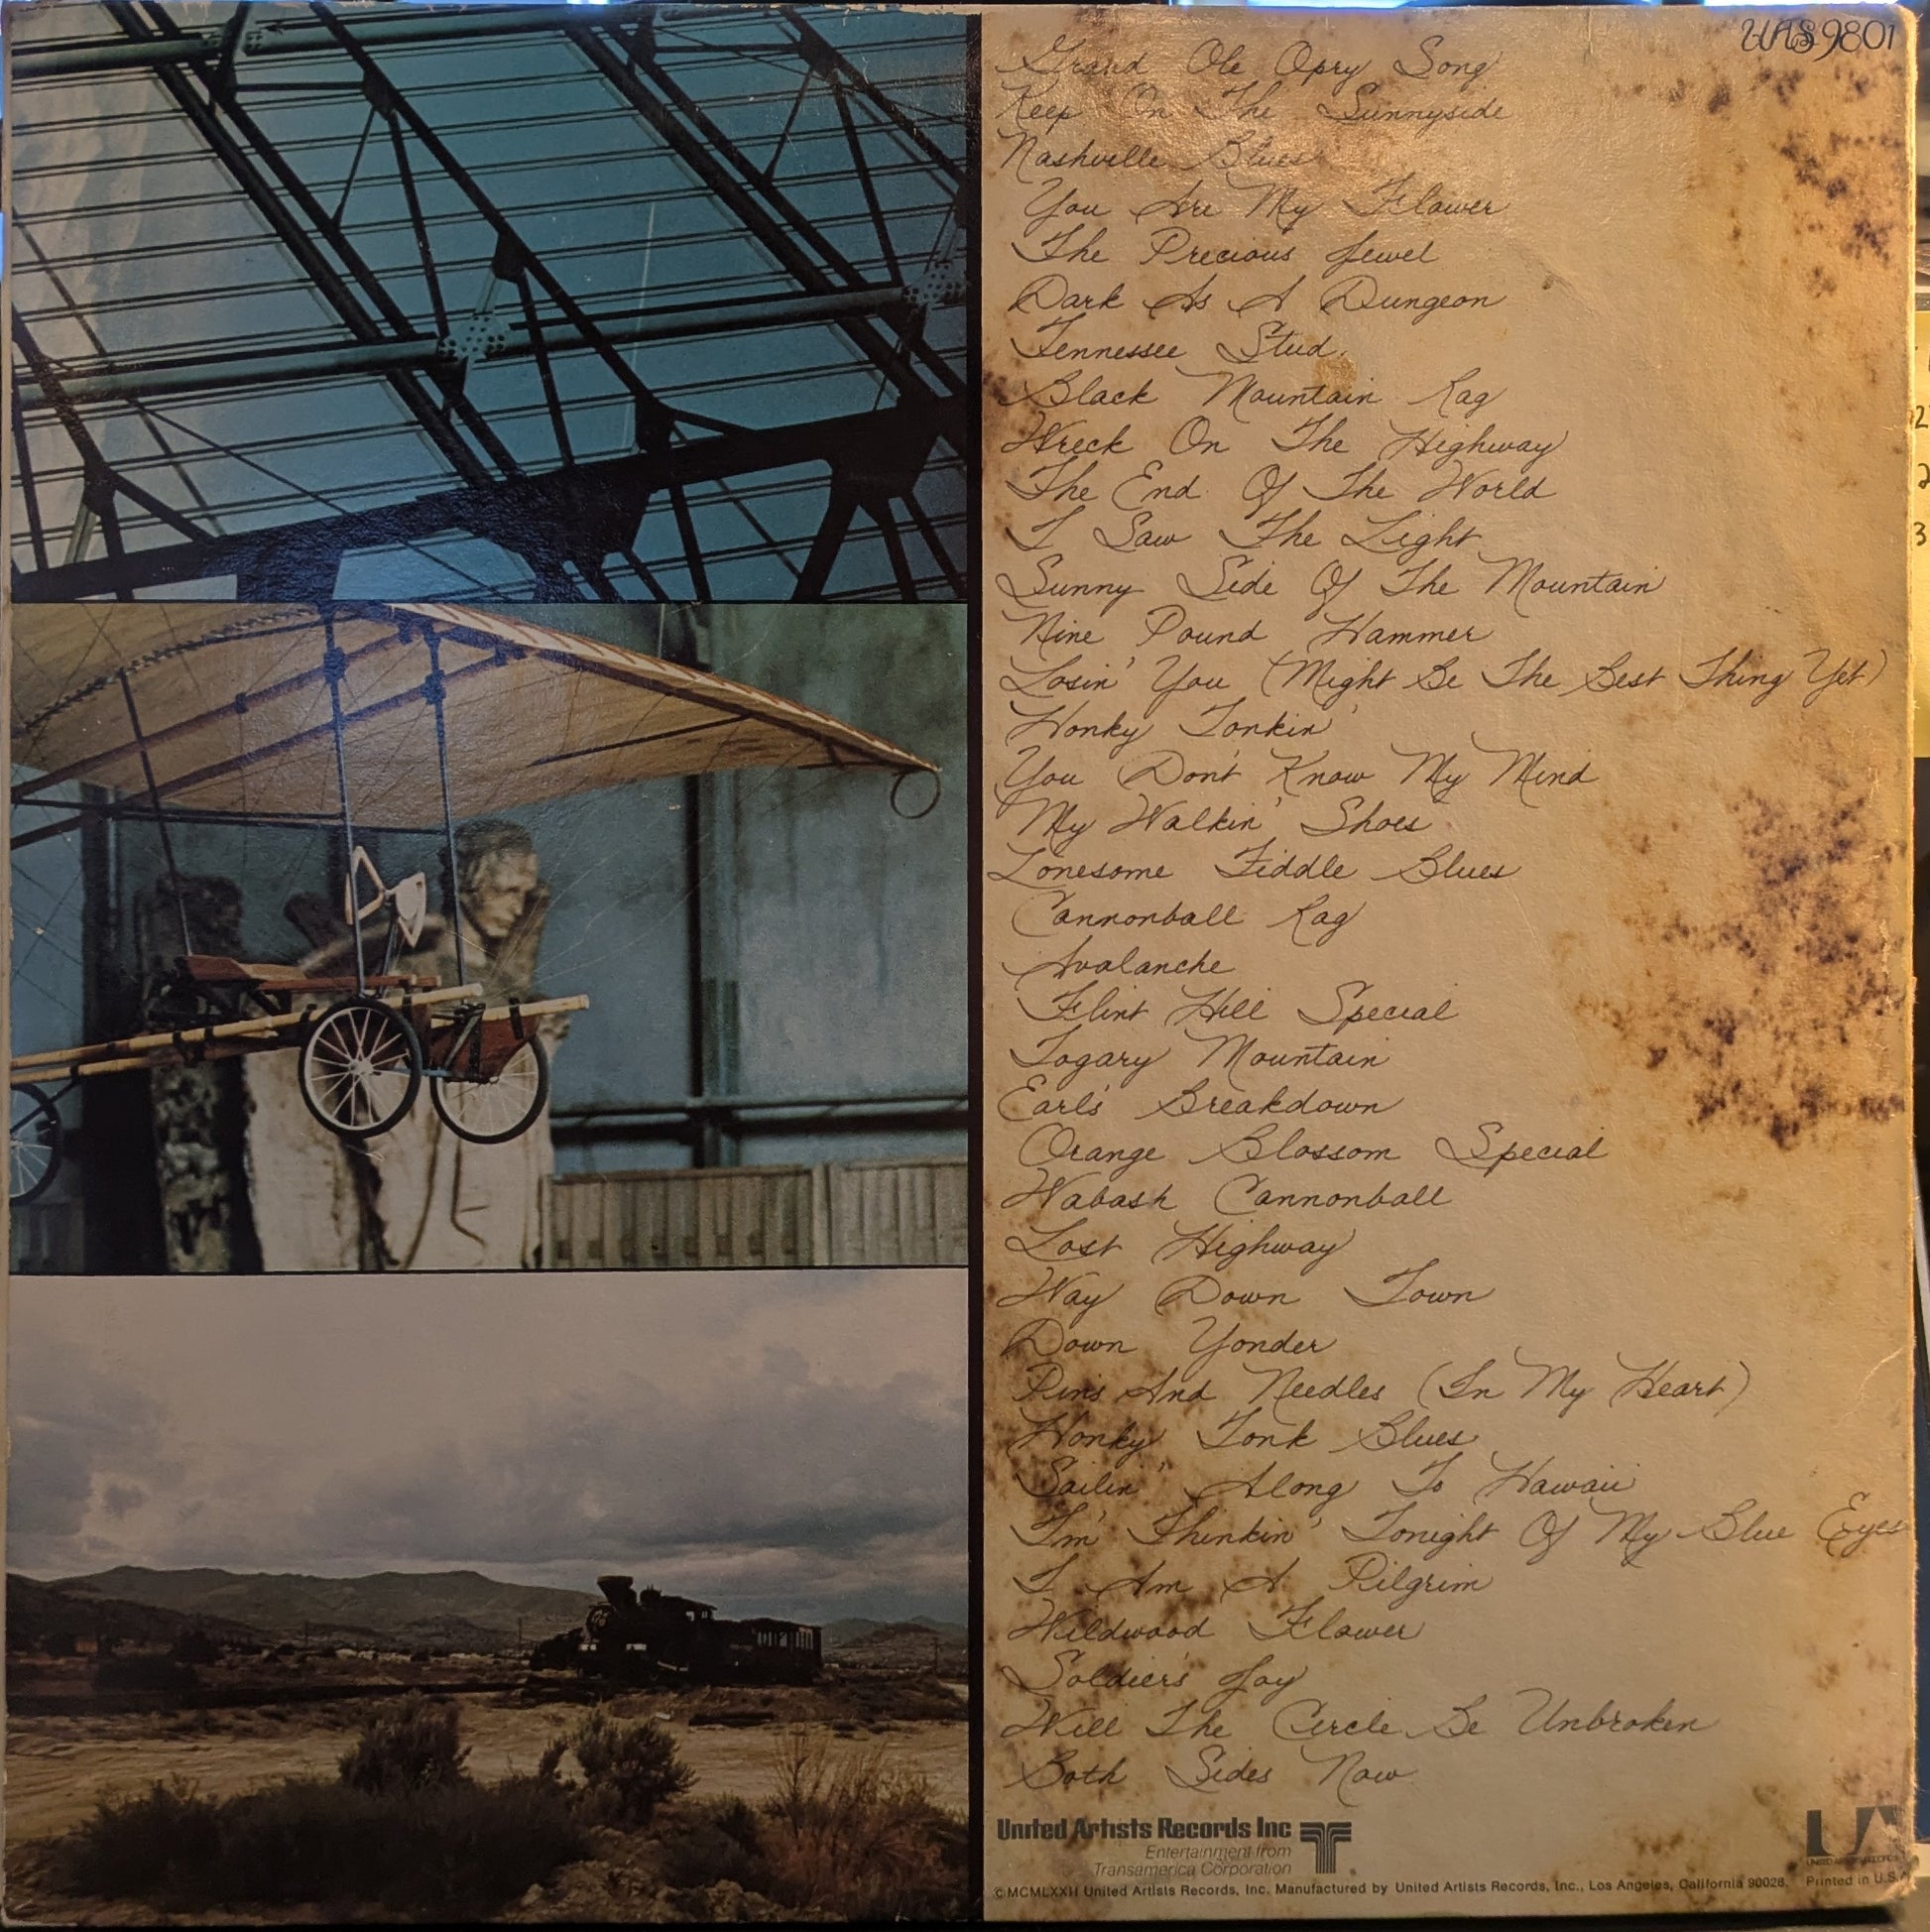 UAS 9801
Grand Ole Opry Song
Keep On The Sunnyside
Nashville Blues
You Are My Flower
The Precious Jewel
Dark As A Dungeon
Tennessee Stud
Black Mountain Rag
Wreck On The Highway
The End Of The World
I Saw The Light
Sunny Side Of The Mountain
Nine Pound Hammer
Losin' You (Might Be The Best Thing Yet)
Honky Tonkin'
You Don't Know My Mind
My Walkin' Shoes
Lonesome Fiddle Blues
Cannonball Rag
Avalanche
Flint Hill Special
Togary Mountain
Earl's Breakdown
Orange Blossom Special
Wabash Cannonball
Lost Highway
Way Down Town
Down Yonder
Pins And Needles (In My Heart)
Honky Tonk Blues
Sailin' Along To Hawaii
I'm Thinkin' Tonight Of My Blue Eyes
I Am A Pilgrim
Wildwood Flower
Soldier's Joy
Will The Circle Be Unbroken
Both Sides Now
United Artists Records Inc
Entertainment from
Transamerica Corporation
UA
UNITED ARTISTS RECORDS
©MCMLXXII United Artists Records, Inc. Manufactured by United Artists Records, Inc., Los Angeles, California 90028. Printed in U.S.A.